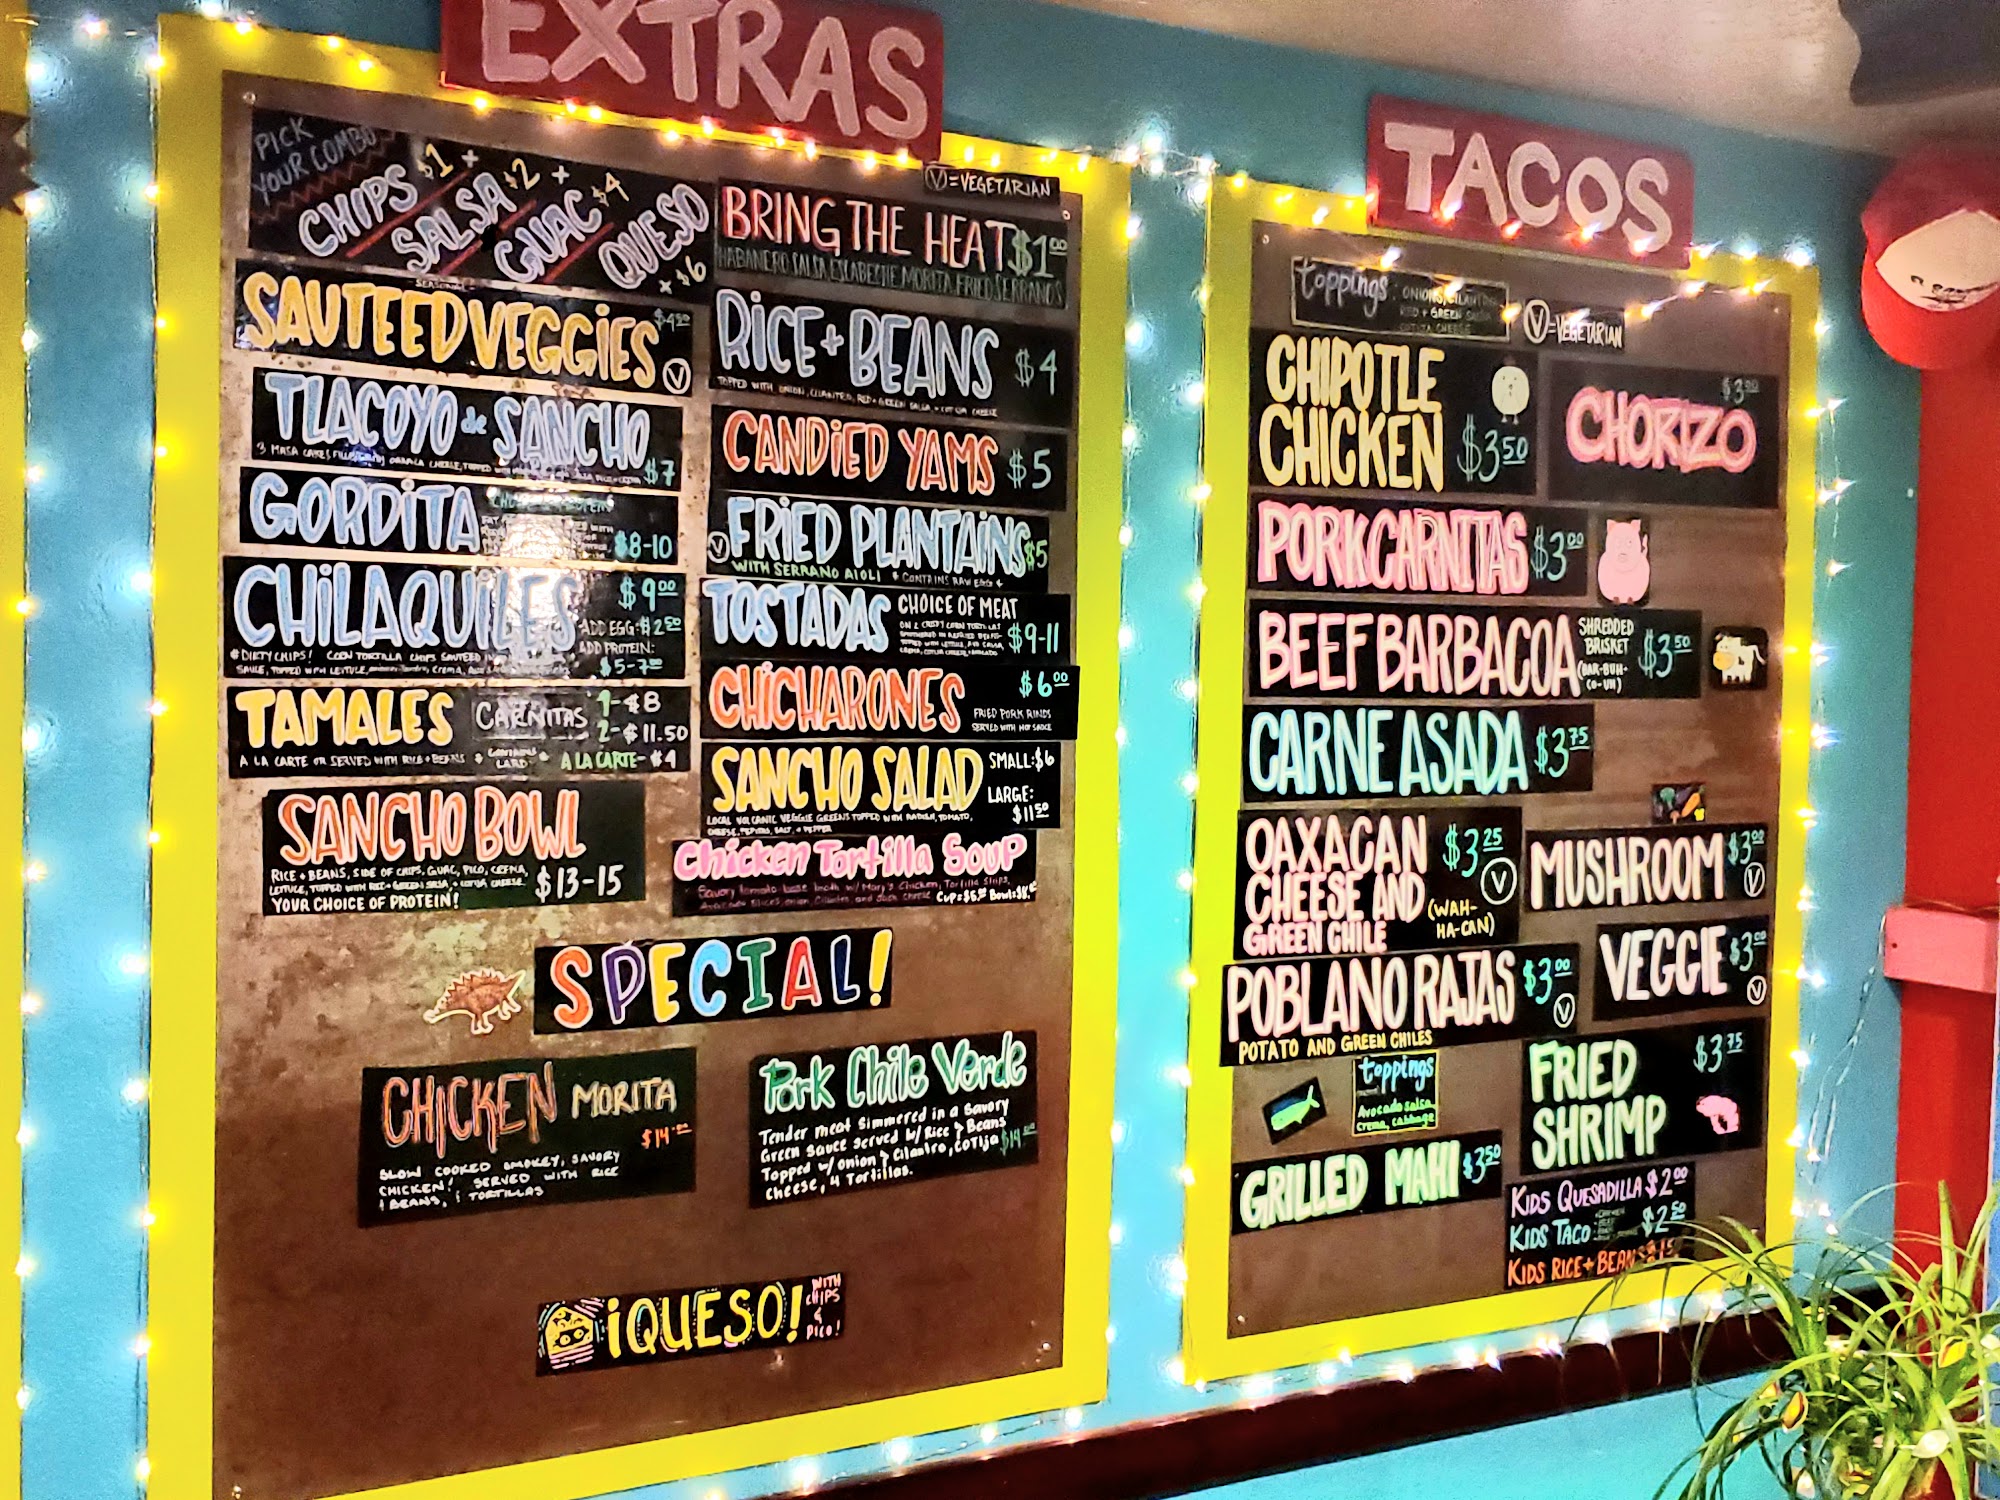 EXTRAS
PICK
YOUR COMBO
CHIPS $1 +
SALSA $2 +
GUAC $4
QUESO
x $6
V = VEGETARIAN
BRING THE HEAT $1.00
HABANERO SALSA ESCABECHE MORITA FRIED SERRANOS
SEASONAL
SAUTEED VEGGIES $4.50
V
RICE + BEANS $4
TOPPED WITH ONION, CILANTRO, RED + GREEN SALSA, + COTIJA CHEESE
TLACOYO de SANCHO
3 MASA CAKES
$7
CANDIED YAMS $5
GORDITA
$8-10
V FRIED PLANTAINS $5
WITH SERRANO AIOLI * CONTAINS RAW EGG *
CHILAQUILES $9.00
ADD EGG: $2.50
ADD PROTEIN:
$5-7.00
#DIRTYCHIPS! CORN TORTILLA CHIPS SAUTEED
SAUCE, TOPPED WITH LETTUCE, CREMA,
TOSTADAS CHOICE OF MEAT
ON 2 CRISPY CORN TORTILLAS
SMOTHERED IN REFRIED BEANS
TOPPED WITH LETTUCE, SALSA,
CREMA, COTIJA CHEESE + AVOCADO
$9-11
TAMALES CARNITAS 1-$8
2-$11.50
A LA CARTE OR SERVED WITH RICE + BEANS * CONTAINS LARD * A LA CARTE- $4
CHICHARONES $6.00
FRIED PORK RINDS
SERVED WITH HOT SAUCE
SANCHO SALAD SMALL: $6
LARGE:
$11.50
LOCAL VOLCANIC VEGGIE GREENS TOPPED WITH RADISH, TOMATO,
CHEESE, PEPITAS, SALT, + PEPPER
SANCHO BOWL
RICE + BEANS, SIDE OF CHIPS, GUAC, PICO, CREMA,
LETTUCE, TOPPED WITH RED + GREEN SALSA, + COTIJA CHEESE.
YOUR CHOICE OF PROTEIN! $13-15
Chicken Tortilla Soup
Savory tomato base broth w/ Mary's Chicken, Tortilla Strips,
Avocado slices, onion, Cilantro, and Jack cheese Cup=$5. Bowl=$8.
SPECIAL!
CHICKEN MORITA
$14.00
SLOW COOKED SMOKEY, SAVORY
CHICKEN! SERVED WITH RICE
+ BEANS, & TORTILLAS
Pork Chile Verde
Tender meat Simmered in a Savory
Green Sauce Served w/ Rice & Beans
Topped w/ onion & Cilantro, COTIJA $14.00
cheese, 4 Tortillas.
¡QUESO!
WITH
CHIPS
&
PICO!
TACOS
toppings: ONIONS, CILANTRO
RED + GREEN SALSA
COTIJA CHEESE
V = VEGETARIAN
CHIPOTLE
CHICKEN $3.50
$3.00
CHORIZO
PORK CARNITAS $3.00
BEEF BARBACOA SHREDDED
BRISKET
(BAR-BUH-
CO-UH)
$3.50
CARNE ASADA $3.75
OAXACAN $3.25
CHEESE AND V
GREEN CHILE (WAH-
HA-CAN)
MUSHROOM $3.00
V
POBLANO RAJAS $3.00
V
POTATO AND GREEN CHILES
VEGGIE $3.00
V
toppings
Avocado salsa,
crema, cabbage
FRIED $3.75
SHRIMP
GRILLED MAHI $3.50
KIDS QUESADILLA $2.00
KIDS TACO $2.50
KIDS RICE + BEANS